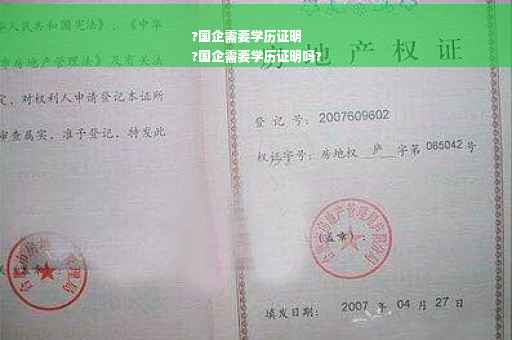 ?国企需要学历证明
?国企需要学历证明吗?
人民共和国宪法》、《中华
房地产管理法》及有关法
定，对权利人申请登记本证所
审查属实，准予登记，特发此
房地产权证
登记号：2007609602
权证字号：房地权 庐 字第 085042 号
(盖章)：
填发日期：2007 年 04 月 27 日